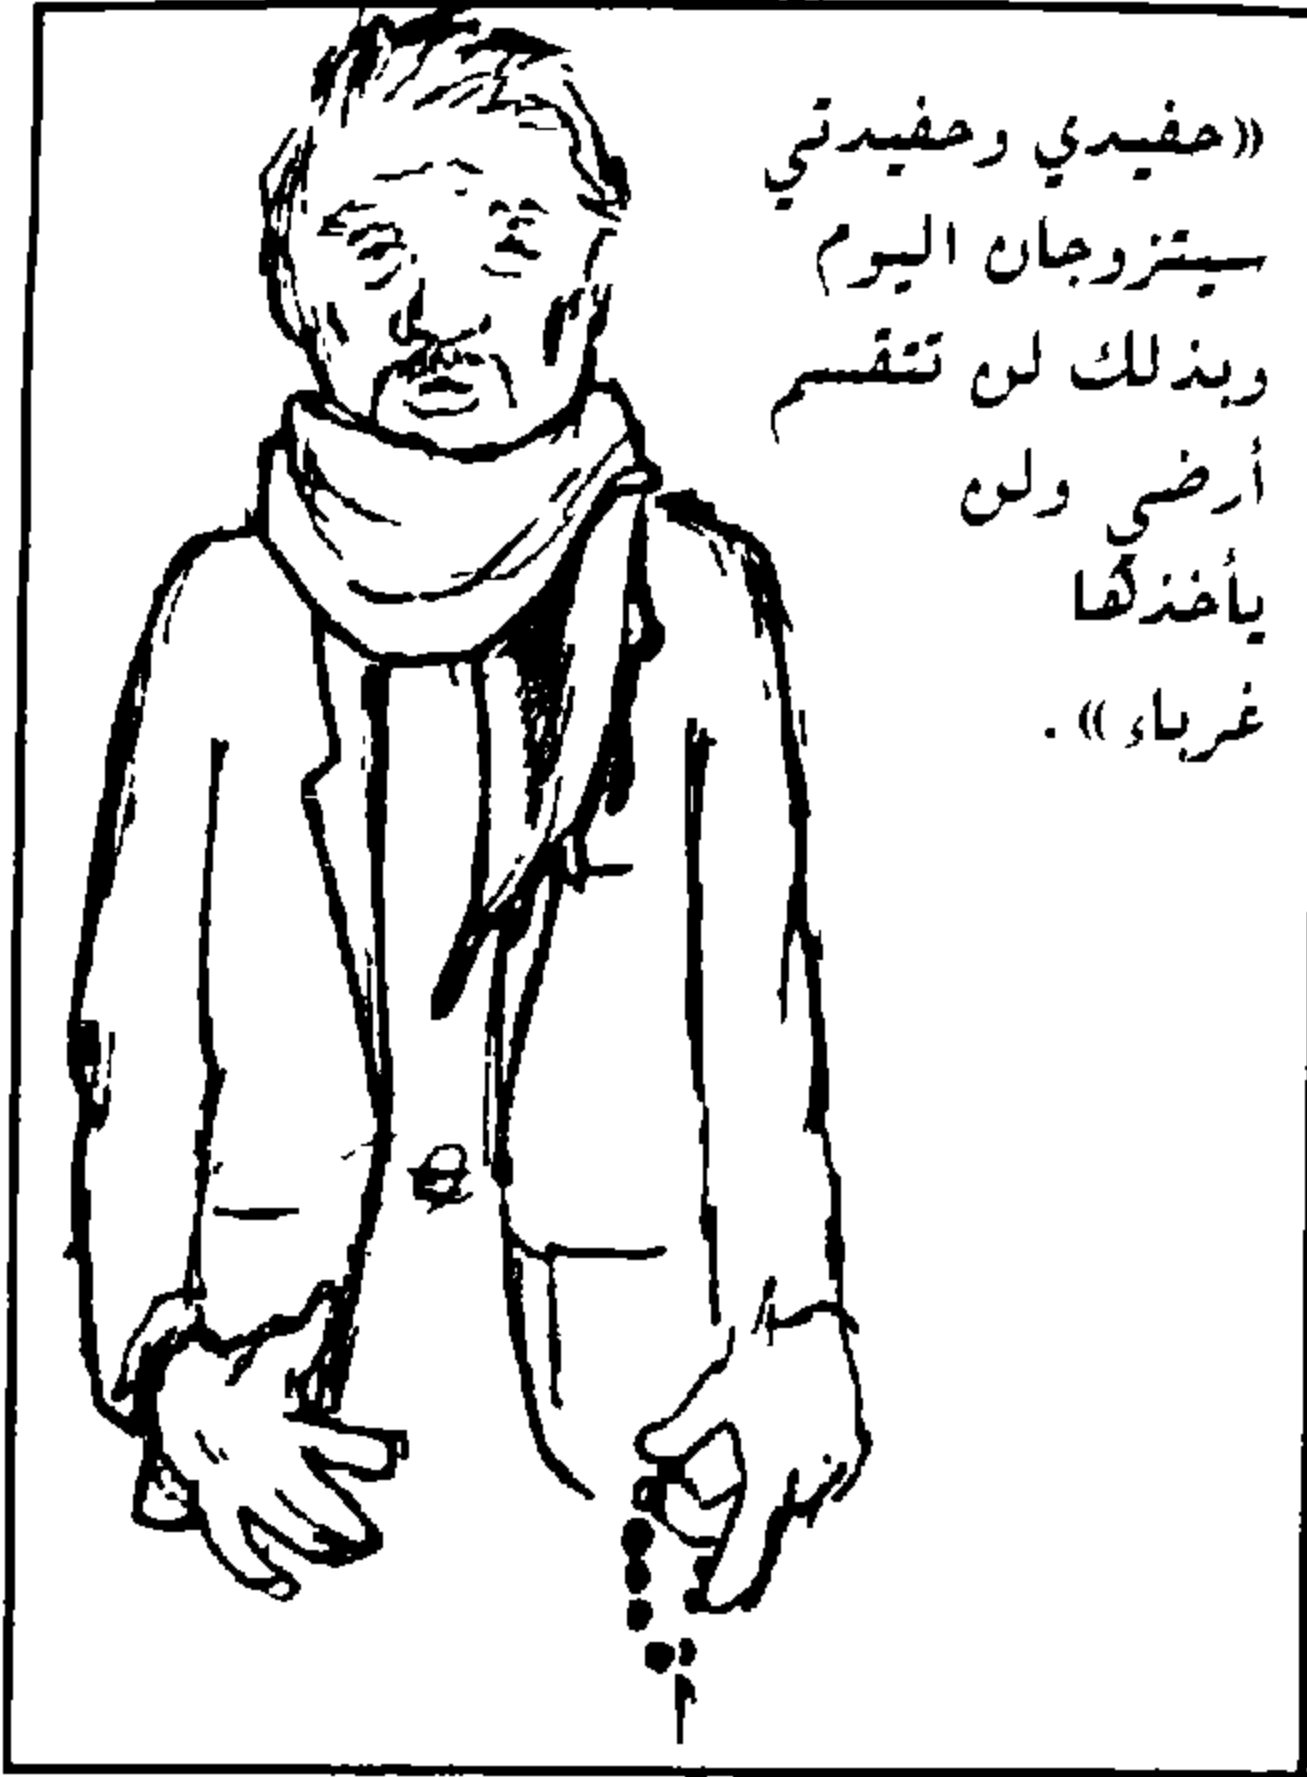 «حفيدي وحفيدتي
سيتزوجان اليوم
وبذلك لن تتقسم
أرضي ولن
يأخذها
غرباء».